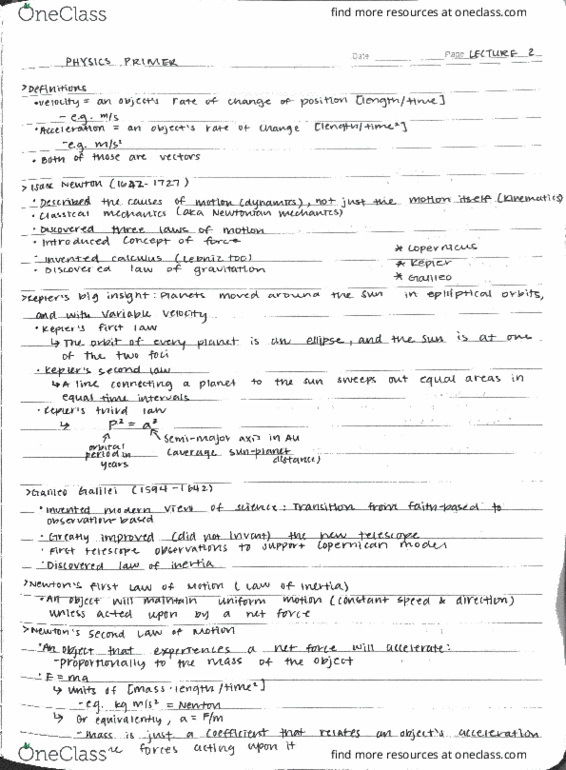 OneClass find more resources at oneclass.com
Date Page LECTURE 2
PHYSICS PRIMER
>Definitions
•velocity = an object's rate of change of position [length/time]
- e.g. m/s
•Acceleration = an object's rate of change [length/time²]
-e.g. m/s²
• Both of those are vectors
> Isaac Newton (1642-1727)
• Described the causes of motion (dynamics), not just the motion itself (kinematics)
• Classical mechanics (aka Newtonian mechanics)
• Discovered three laws of motion
• Introduced concept of force
- Invented calculus (Lebniz too)
• Discovered law of gravitation
* Copernicus
* Kepler
* Galileo
>Kepler's big insight: Planets moved around the sun in eplliptical orbits,
and with variable velocity
• Kepler's first law
↳ The orbit of every planet is an ellipse, and the sun is at one
of the two foci
• Kepler's second law
↳ A line connecting a planet to the sun sweeps out equal areas in
equal time intervals
• Kepler's third law
↳ P² = a³
orbital
period in
years
semi-major axis in AU
(average sun-planet
distance)
>Galileo Galilei (1594-1642)
• Invented modern view of science: Transition from faith-based to
observation based
• Greatly improved (did not invent) the new telescope
• First telescope observations to support Copernican model
• Discovered law of inertia
>Newton's First Law of Motion (Law of Inertia)
•An object will maintain uniform motion (constant speed & direction)
unless acted upon by a net force
>Newton's Second Law of Motion
•An object that experiences a net force will accelerate:
-proportionally to the mass of the object
• F = ma
↳ units of [mass·length/time²]
-eg. kg m/s² = Newton
↳ Or equivalently, a = F/m
-Mass is just a coefficient that relates an object's acceleration
forces acting upon it
OneClass find more resources at oneclass.com